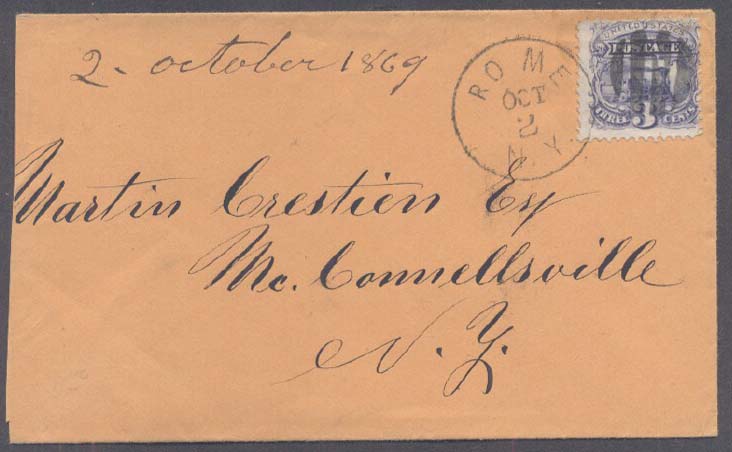 2. october 1869
ROME
OCT
2
N.Y.
UNITED STATES
POSTAGE
THREE 3 CENTS
Martin Crestien Esq
Mc. Connellsville
N. Y.